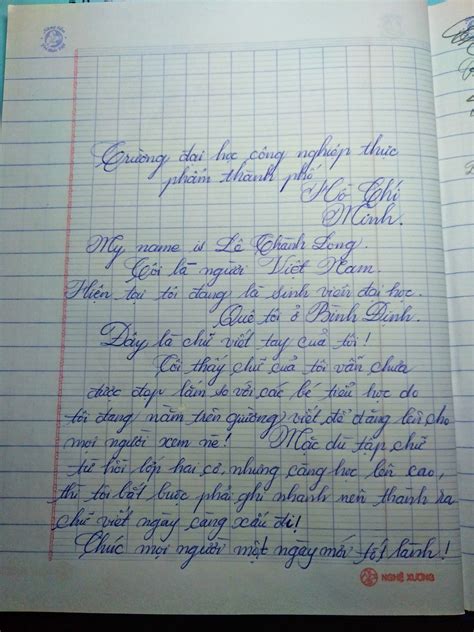 Trường đại học công nghiệp thực
phẩm thành phố
Hồ Chí
Minh.
My name is Lê Thành Long.
Tôi là người Việt Nam.
Hiện tại tôi đang là sinh viên đại học.
Quê tôi ở Bình Định.
Đây là chữ viết tay của tôi!
Tôi thấy chữ của tôi vẫn chưa
được đẹp lắm so với các bé tiểu học do
tôi đang nằm trên giường viết, để đăng lên cho
mọi người xem nè! Mặc dù tập chữ
từ hồi lớp hai cơ, nhưng càng học lên cao,
thì tôi bắt buộc phải ghi nhanh nên thành ra
chữ viết ngày càng xấu đi!
Chúc mọi người một ngày mới tốt lành!
NGHỆ XƯƠNG